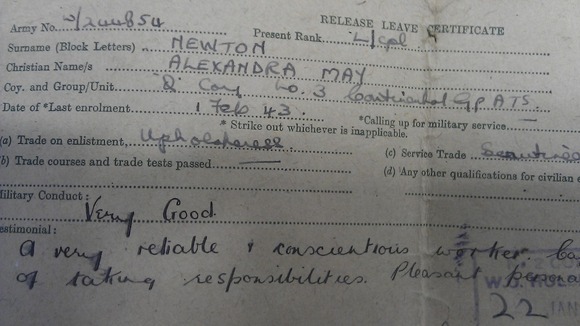 RELEASE LEAVE CERTIFICATE
Army No. W/244854 Present Rank L/Cpl
Surname (Block Letters) NEWTON
Christian Name/s ALEXANDRA MAY
Coy. and Group/Unit "Q" Coy No. 3 Continental Gp. ATS.
Date of *Last enrolment 1 Feb 43. *Calling up for military service
* Strike out whichever is inapplicable.
(a) Trade on enlistment, Upholsteress (c) Service Trade
(b) Trade courses and trade tests passed (d) Any other qualifications for civilian e
Military Conduct:
Very Good
estimonial:
A very reliable & conscientious worker. Ca
of taking responsibilities. Pleasant persona
22 JAN